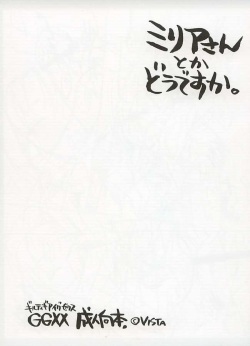 ミリアさん
とか
どうですか。
ギルティギアイグゼクス
GGXX 成人向本。©VISTA